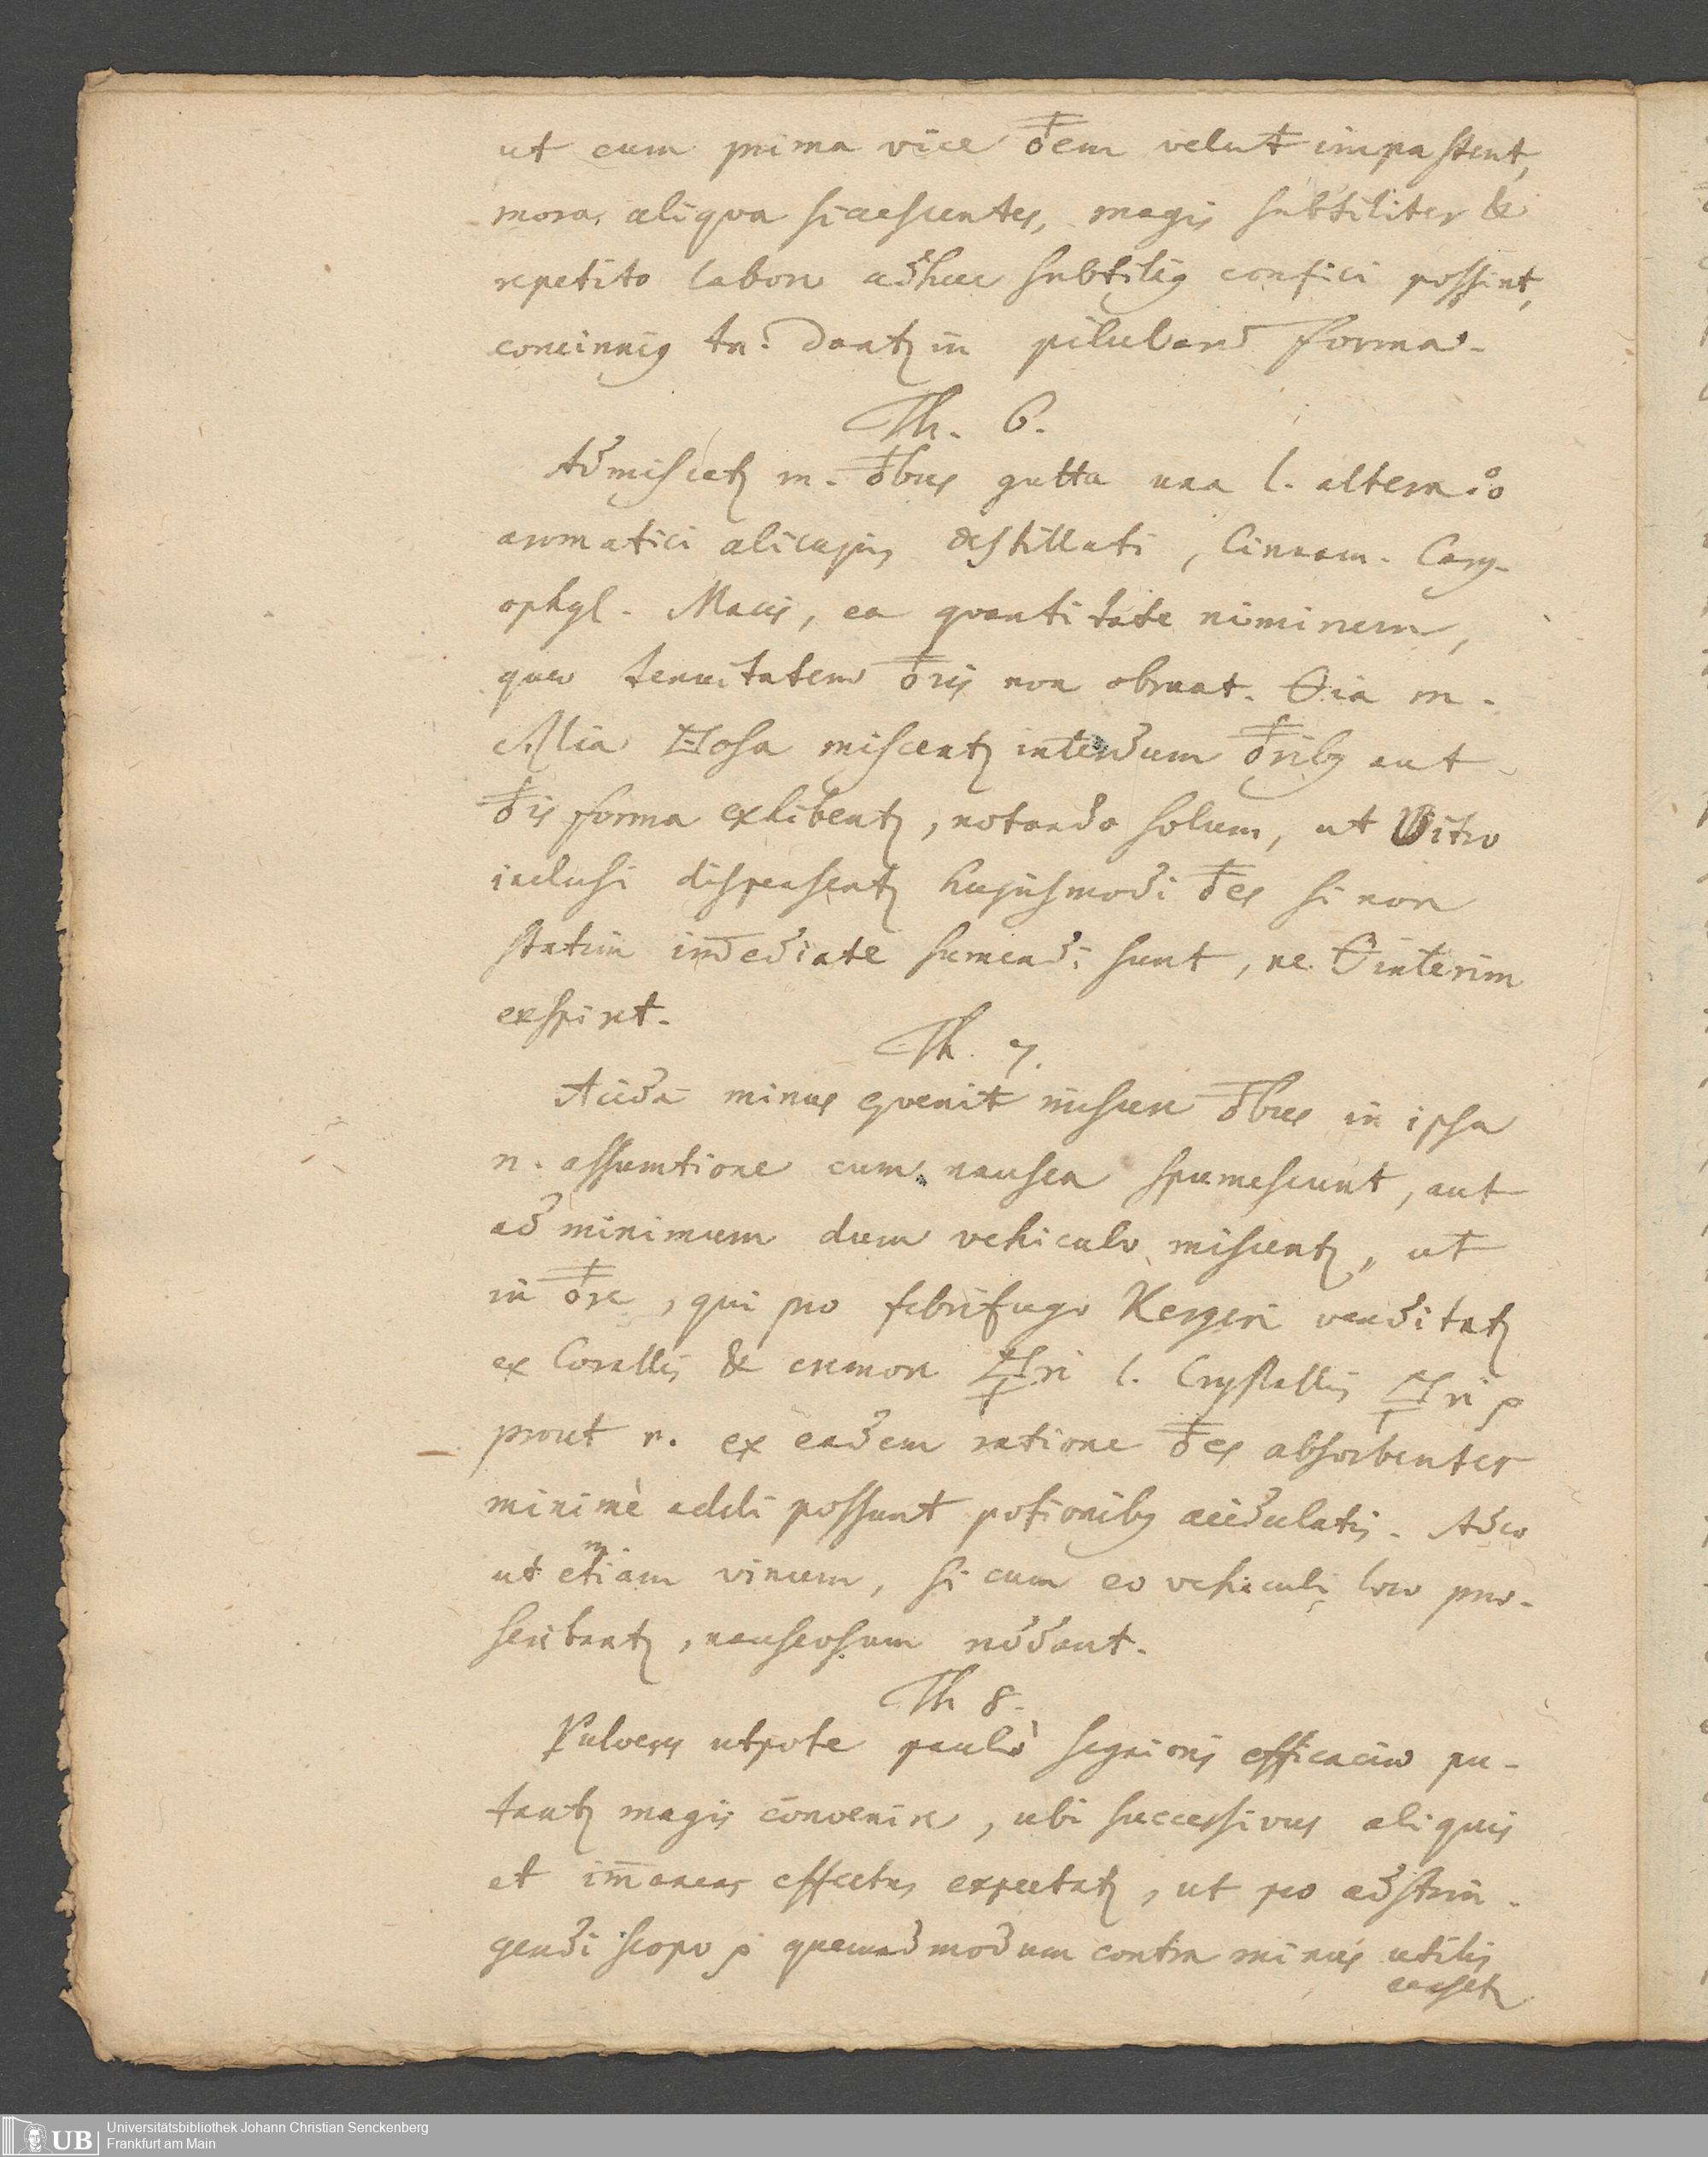 ut cum prima vice 🜿em velut impastent,
mora aliqva siccescentes, magis subtiliter &
repetito labore adhuc subtiliꝰ confici possint,
concinniꝰ tn. dantꝛ in pilular. forma.
Th. 6.
Admiscetꝛ m. bus gutta una l. altera
aromatici alicujus destillati, Cinnam. Cary-
ophyl. Macis, ea qvantitate niminem,
quae tenuitatem ris non obruat. Oia m.
Alia osa miscentꝛ interdum ribꝰ aut
is forma exhibentꝛ, notando solum, ut Vitro
inclusi dispensentꝛ hujusmodi es si non
statim im̄ediate sumendi sunt, ne interim
exspiret.
Th. 7.
Acida minus qvenit miscere bus in ipsa
n. assumtione cum nausea spumescunt, aut
ad minimum dum vehiculo miscentꝛ, ut
in re, qui pro febrifugo Kergeri venditatꝛ
ex Corallis & cremore ri l. Crystallis ri p
prout n. ex eadem ratione es absorbentes
minimè addi possunt potionibꝰ acidulatis. Adeo
ut etiam vinum, si cum eo vehiculi loco prae-
scribantꝛ, nauseosum reddant.
Th 8.
Pulveres utpote paulò segnioris efficaciae pu-
tantꝛ magis convenire, ubi successivus aliquis
et im̄anens effectus expectatꝛ, ut pro adstrin-
gendi scopo p quemadmodum contra minus utilis
censetꝛ
Universitätsbibliothek Johann Christian Senckenberg
Frankfurt am Main
UB